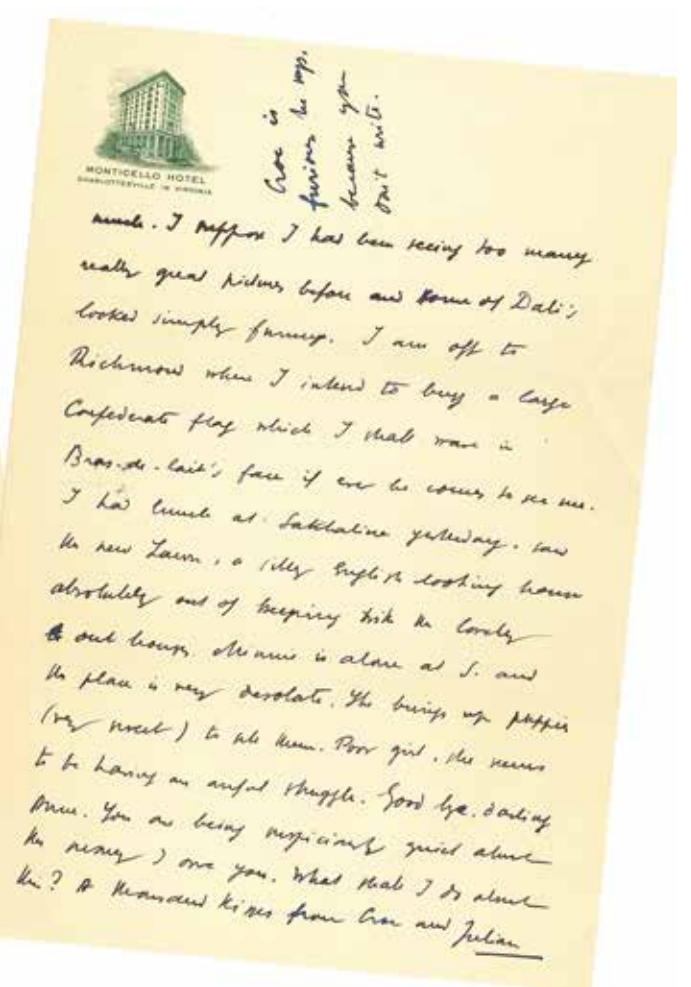 MONTICELLO HOTEL
CHARLOTTESVILLE IN VIRGINIA
Croc is
furious he says,
because you
don't write.
much. I suppose I had been seeing too many
really great pictures before and some of Dali's
looked simply funny. I am off to
Richmond where I intend to buy a large
Confederate flag which I shall wave in
Bras-de-lait's face if ever he comes to see me.
I had lunch at Sakhalin yesterday, saw
the new Lawn, a silly English looking house
absolutely out of keeping with the lovely
out houses. is alone at S. and
the place is very desolate. She brings up puppies
(very sweet) to sell them. Poor girl, she seems
to be having an awful struggle. Good bye, darling
You are being suspiciously quiet about
the money I owe you. What shall I do about
this? A thousand kisses from Croc and Julian